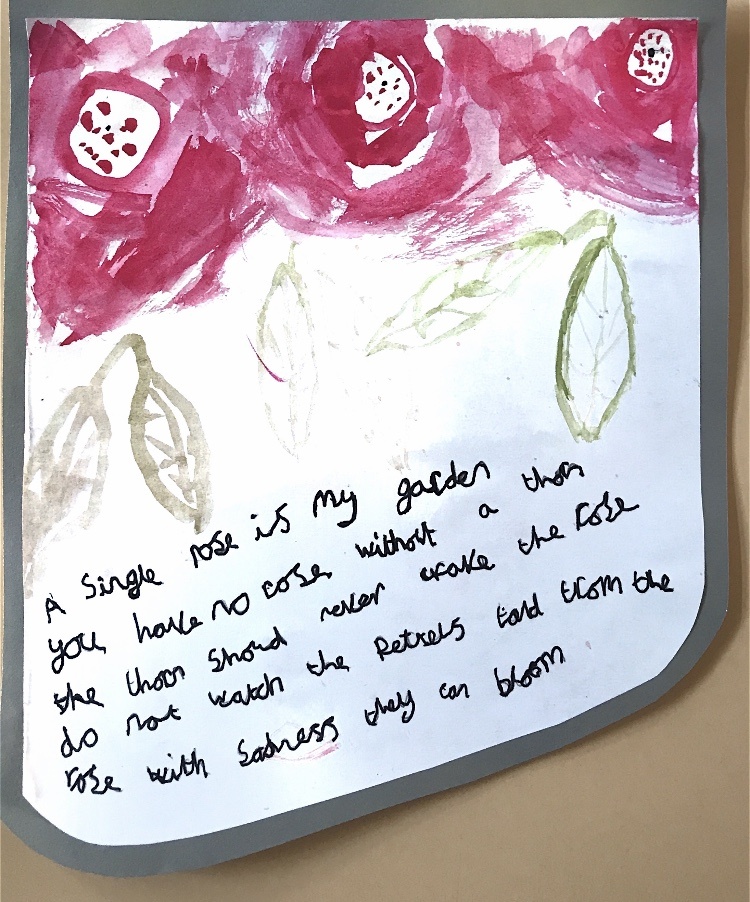 A single rose is my garden
you have no rose without a thorn
the thorn should never the rose
do not watch the Petrels from the
rose with Sadness they can bloom